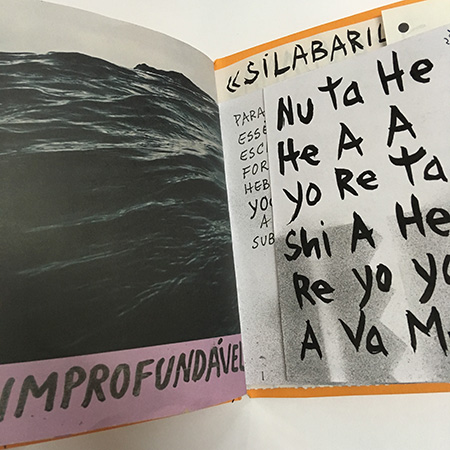 IMPROFUNDÁVEL
«SiLABARiL
PARA
ESSE
ESC
FOR
HEB
YO
A
SUB
Nu Ta He
He A A
yo Re Ta
Shi A He
Re yo yo
A Va M